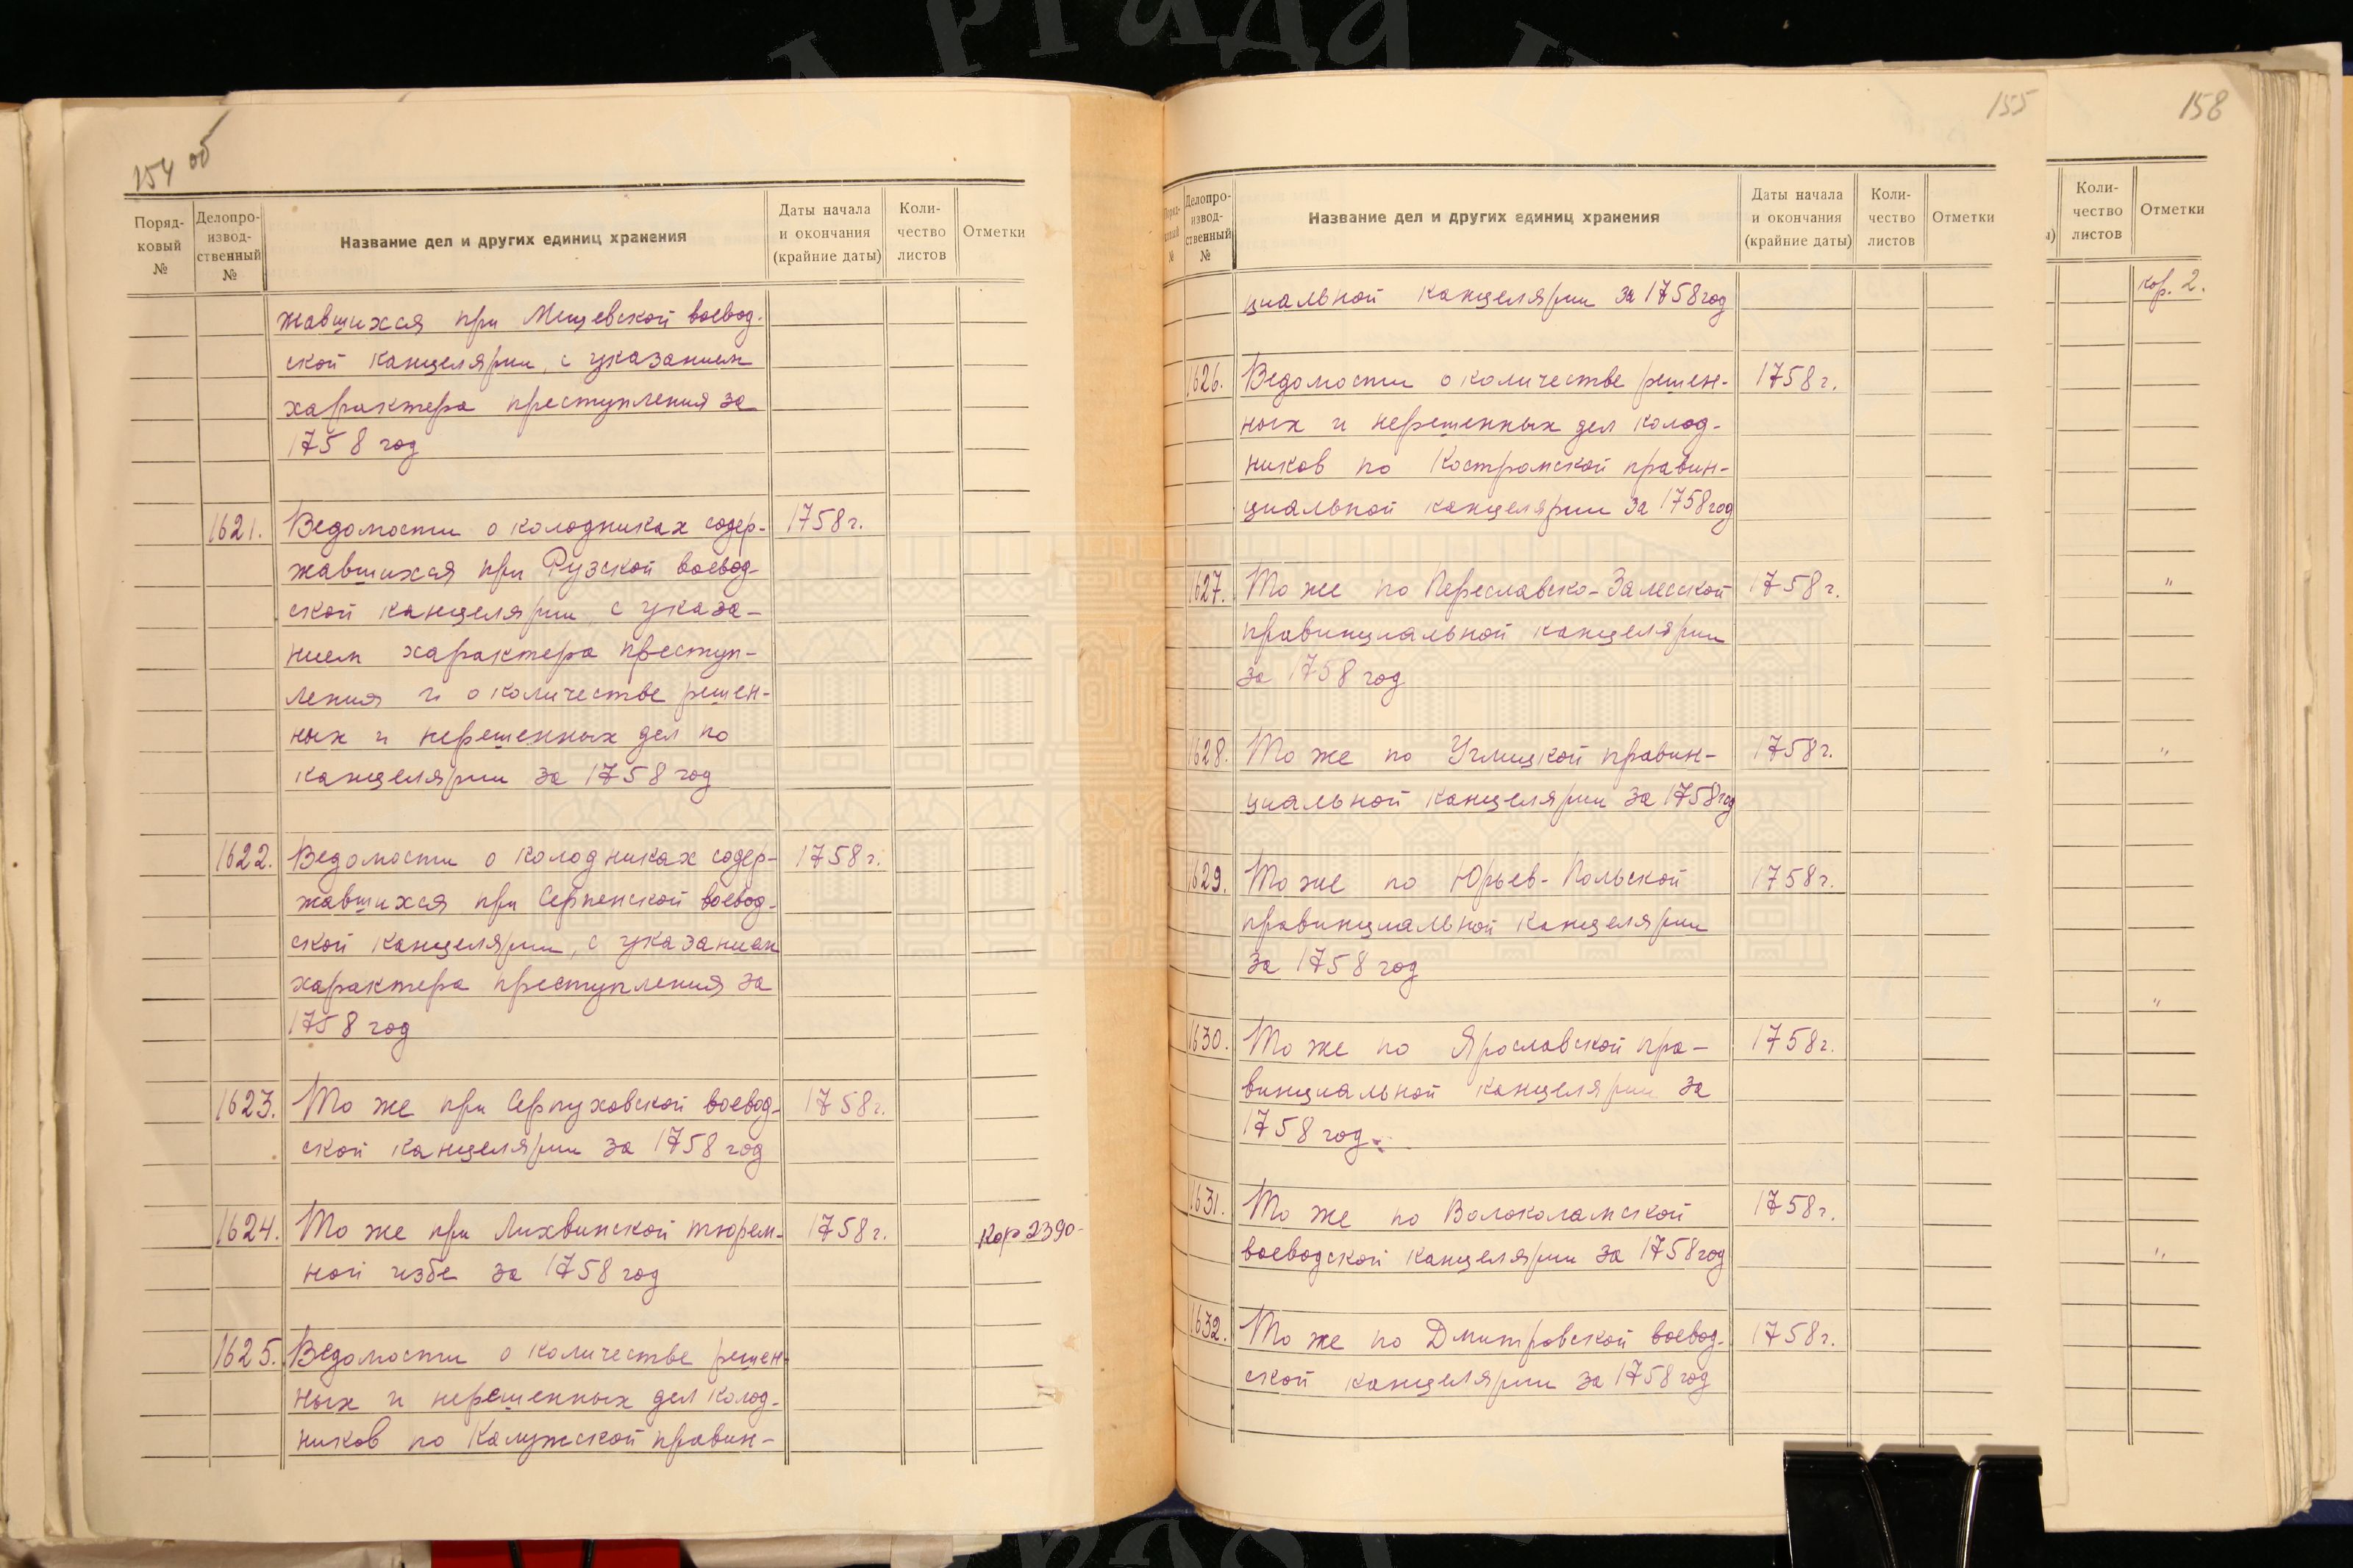 154 об
Поряд-
ковый
№
Делопро-
извод-
ственный
№
Название дел и других единиц хранения
Даты начала
и окончания
(крайние даты)
Коли-
чество
листов
Отметки
жавшихся при Мещевской воевод-
ской канцелярии, с указанием
характера преступления за
1758 год
1621. Ведомости о колодниках содер- 1758 г.
жавшихся при Рузской воевод-
ской канцелярии, с указа-
нием характера преступ-
ления и о количестве решен-
ных и нерешенных дел по
канцелярии за 1758 год
1622. Ведомости о колодниках содер- 1758 г.
жавшихся при Серпенской воевод-
ской канцелярии, с указанием
характера преступления за
1758 год
1623. То же при Серпуховской воевод- 1758 г.
ской канцелярии за 1758 год
1624. То же при Лихвинской тюрем- 1758 г. Кор 2390-
ной избе за 1758 год
1625. Ведомости о количестве решен-
ных и нерешенных дел колод-
ников по Калужской правин-
155
Делопро-
извод-
ственный
№
Название дел и других единиц хранения
Даты начала
и окончания
(крайние даты)
Коли-
чество
листов
Отметки
циальной канцелярии за 1758 год
1626. Ведомости о количестве решен- 1758 г.
ных и нерешенных дел колод-
ников по Костромской правин-
циальной канцелярии за 1758 год
1627. То же по Переславско-Залесской 1758 г.
правинциальной канцелярии
за 1758 год
1628. То же по Углицкой правин- 1758 г.
циальной канцелярии за 1758 год
1629. То же по Юрьев-Польской 1758 г.
правинциальной канцелярии
за 1758 год
1630. То же по Ярославской пра- 1758 г.
винциальной канцелярии за
1758 год.
1631. То же по Волоколамской 1758 г.
воеводской канцелярии за 1758 год
1632. То же по Дмитровской воевод- 1758 г.
ской канцелярии за 1758 год
158
Коли-
чество
листов
Отметки
кор. 2.
"
"
"
"